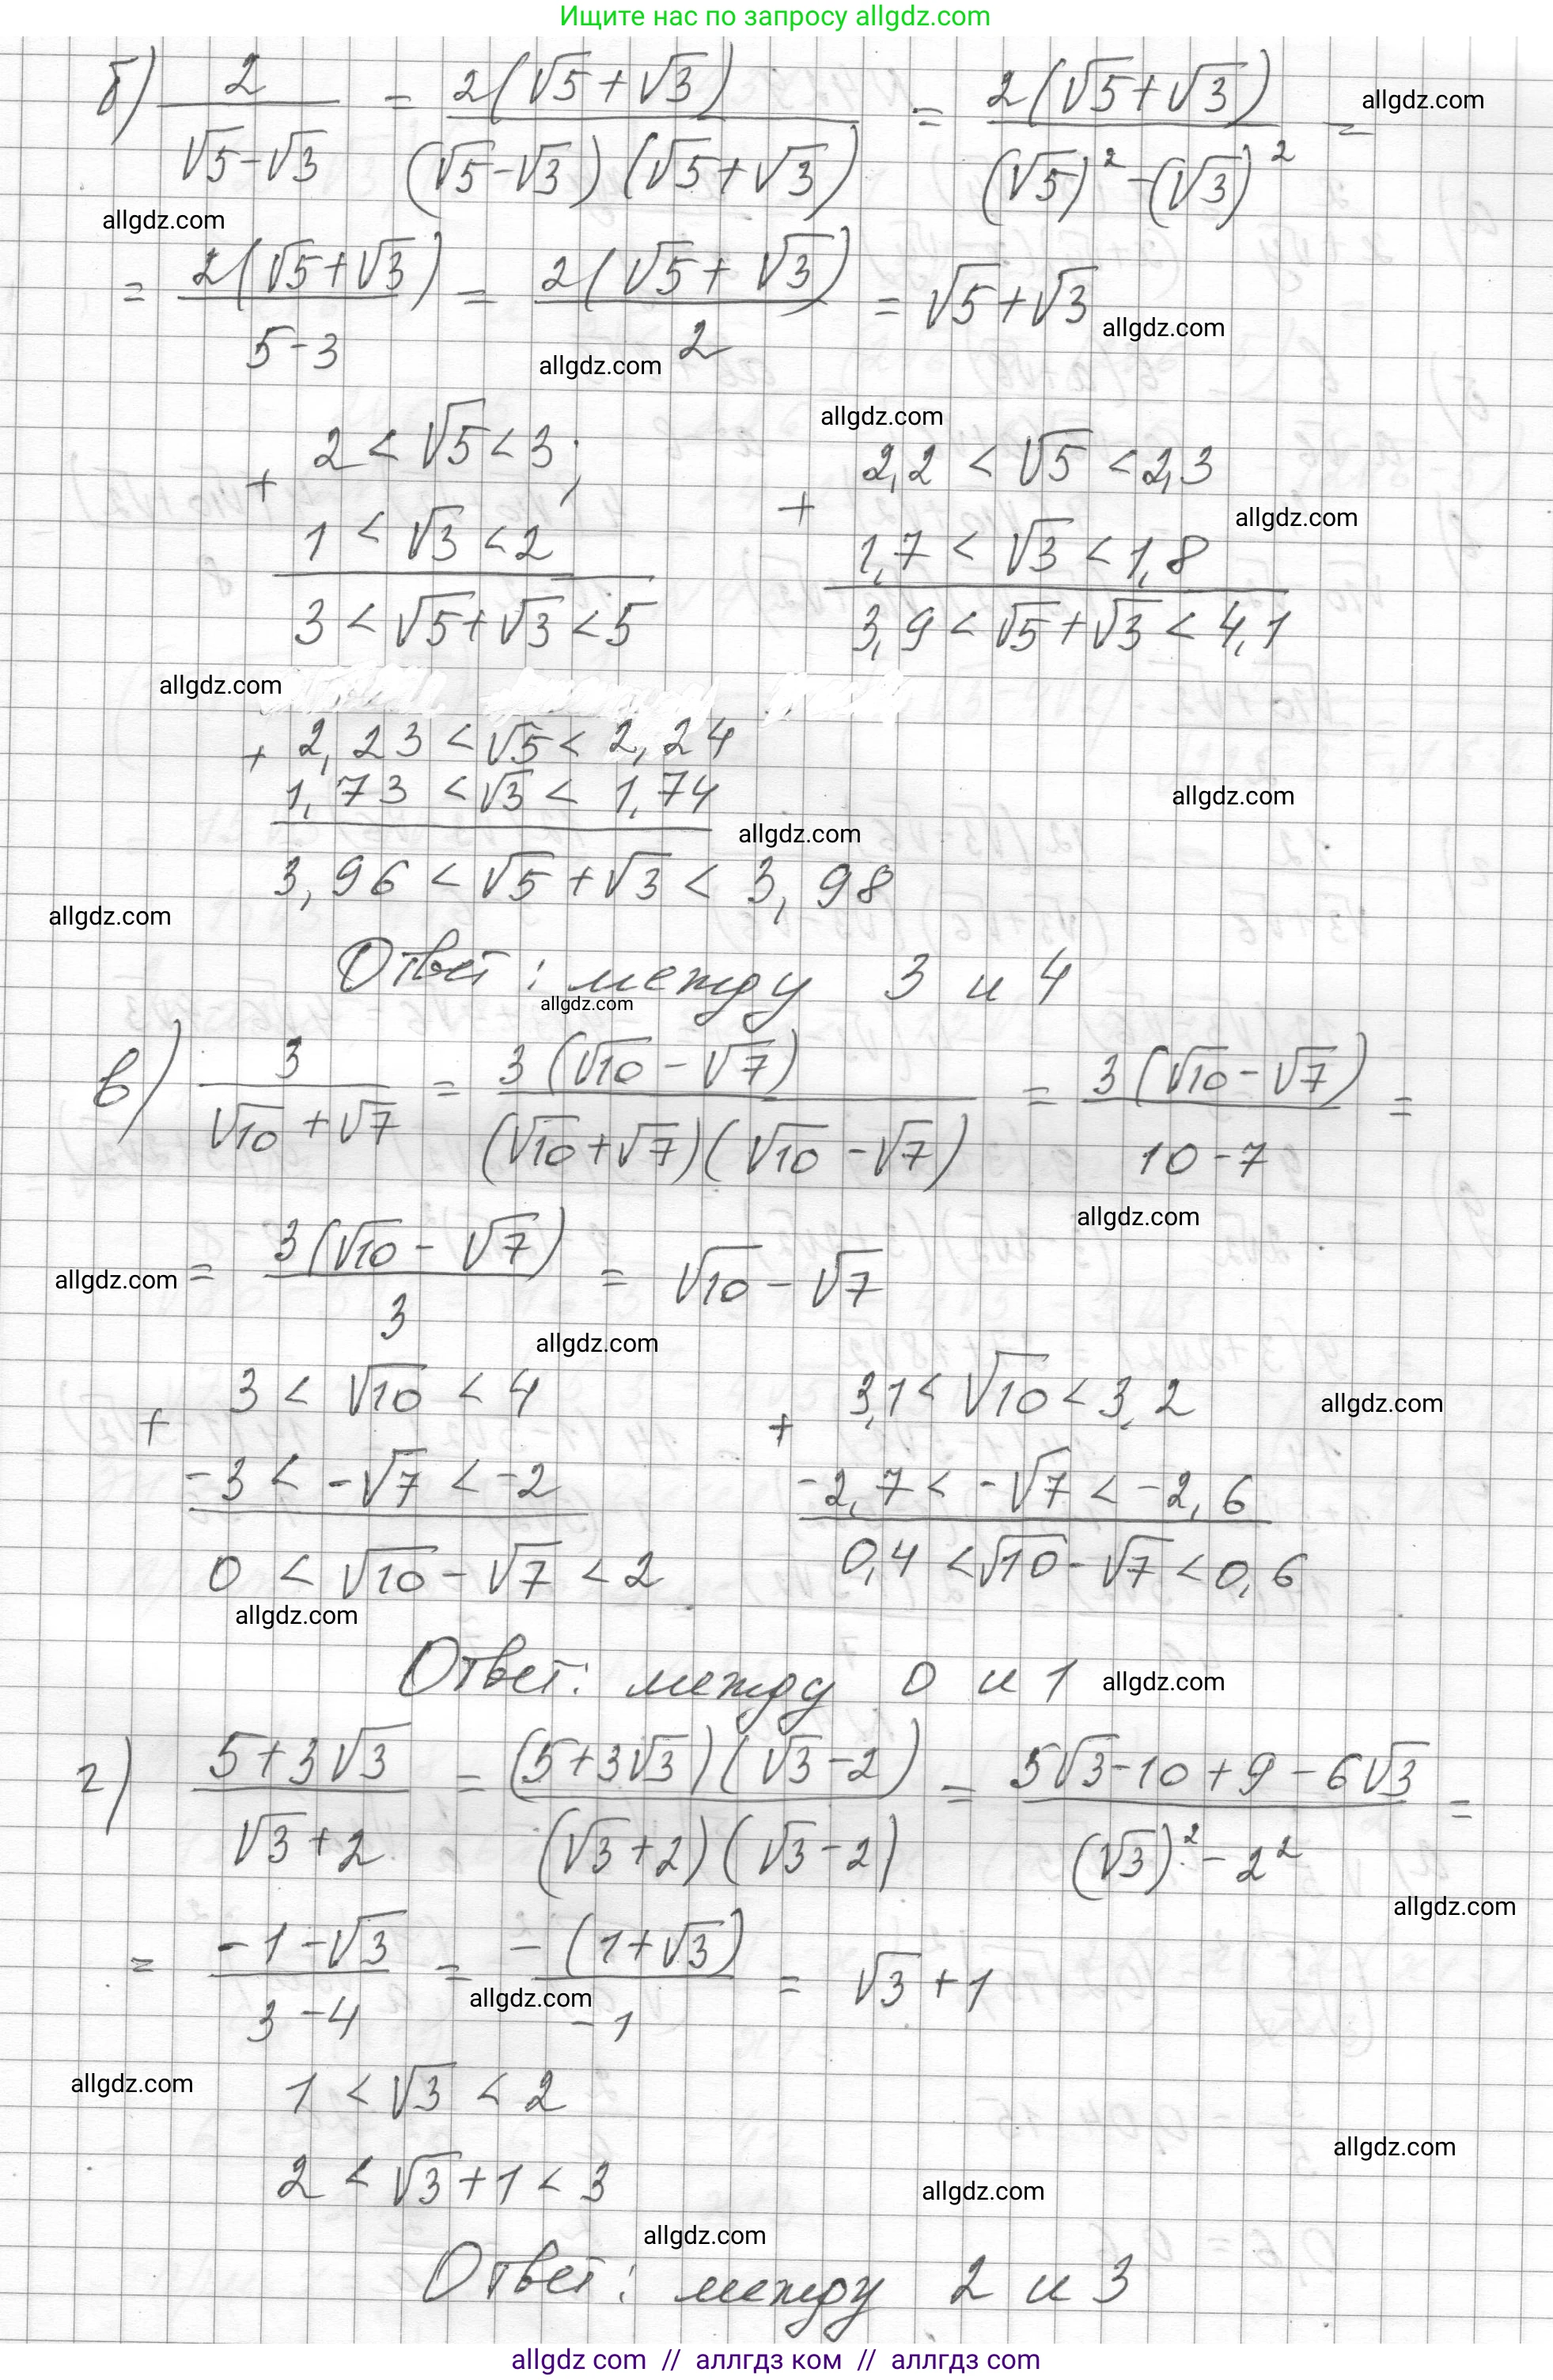 Ищите нас по запросу allgdz.com
б) 2/(√5-√3) = 2(√5+√3)/((√5-√3)(√5+√3)) = 2(√5+√3)/((√5)²-(√3)²) =
allgdz.com
allgdz.com
= 2(√5+√3)/(5-3) = 2(√5+√3)/2 = √5+√3
allgdz.com
allgdz.com
allgdz.com
+ 2 < √5 < 3; + 2,2 < √5 < 2,3
allgdz.com
1 < √3 < 2 1,7 < √3 < 1,8
3 < √5+√3 < 5 3,9 < √5+√3 < 4,1
allgdz.com
+ 2,23 < √5 < 2,24
1,73 < √3 < 1,74
allgdz.com
allgdz.com
3,96 < √5 + √3 < 3,98
allgdz.com
Ответ: между 3 и 4
allgdz.com
в) 3/(√10+√7) = 3(√10-√7)/((√10+√7)(√10-√7)) = 3(√10-√7)/(10-7) =
allgdz.com
allgdz.com
= 3(√10-√7)/3 = √10-√7
allgdz.com
+ 3 < √10 < 4 + 3,1 < √10 < 3,2
allgdz.com
-3 < -√7 < -2 -2,7 < -√7 < -2,6
0 < √10-√7 < 2 0,4 < √10-√7 < 0,6
allgdz.com
Ответ: между 0 и 1
allgdz.com
г) (5+3√3)/(√3+2) = (5+3√3)(√3-2)/((√3+2)(√3-2)) = (5√3-10+9-6√3)/((√3)²-2²) =
allgdz.com
= (-1-√3)/(3-4) = -(1+√3)/-1 = √3+1
allgdz.com
allgdz.com
1 < √3 < 2
allgdz.com
2 < √3+1 < 3
allgdz.com
allgdz.com
Ответ: между 2 и 3
allgdz com // аллгдз ком // аллгдз com